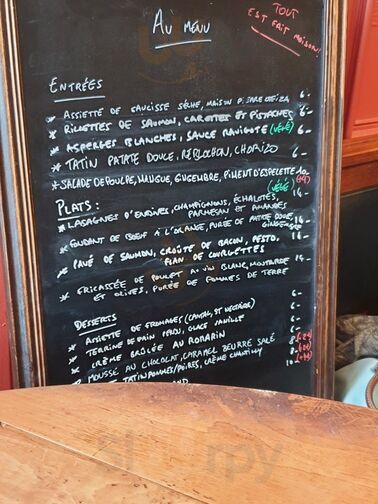 Au MENU
TOUT
EST FAIT MAISON!
ENTRÉES
* ASSIETTE DE SAUCISSE SÈCHE, MAISON 6-
* RILLETTES DE SAUMON, CAROTTES ET PISTACHES 6-
* ASPERGES BLANCHES, SAUCE RAVIGOTE (VÉGÉ) 6-
* TATIN PATATE DOUCE, REBLOCHON, CHORIZO 6-
* SALADE DE POULPE, MANGUE, GINGEMBRE, PIMENT D'ESPELETTE 10-
(+4)
PLATS :
(VÉGÉ)
* LASAGNES D'ENDIVES, CHAMPIGNONS, ÉCHALOTES, 14-
PARMESAN ET AMANDES
* FONDANT DE BOEUF À L'ORANGE, PURÉE DE PATATE DOUCE, 14-
GINGEMBRE
* PAVÉ DE SAUMON, CROÛTE DE BACON, PESTO, 14-
FLAN DE COURGETTES
* FRICASSÉE DE POULET AU VIN BLANC, MOUTARDE 14-
ET OLIVES, PURÉE DE POMMES DE TERRE
DESSERTS
* ASSIETTE DE FROMAGES (CANTAL, ST NECTAIRE) 6-
* TERRINE DE PAIN PERDU, GLACE VANILLE 6-
* CRÈME BRÛLÉE AU ROMARIN 6-
* MOUSSE AU CHOCOLAT, CARAMEL BEURRE SALÉ 8-
TATIN POMMES/POIRES, CRÈME CHANTILLY 8-
10